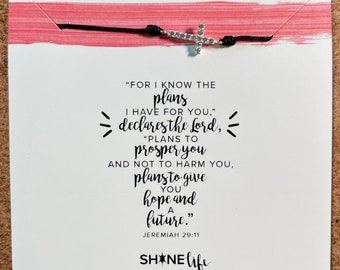 "FOR I KNOW THE
plans
I HAVE FOR YOU,"
declares the Lord,
"PLANS TO
prosper you
AND NOT TO HARM YOU,
plans to give
YOU
hope and
A
future."
JEREMIAH 29:11
SHINE life